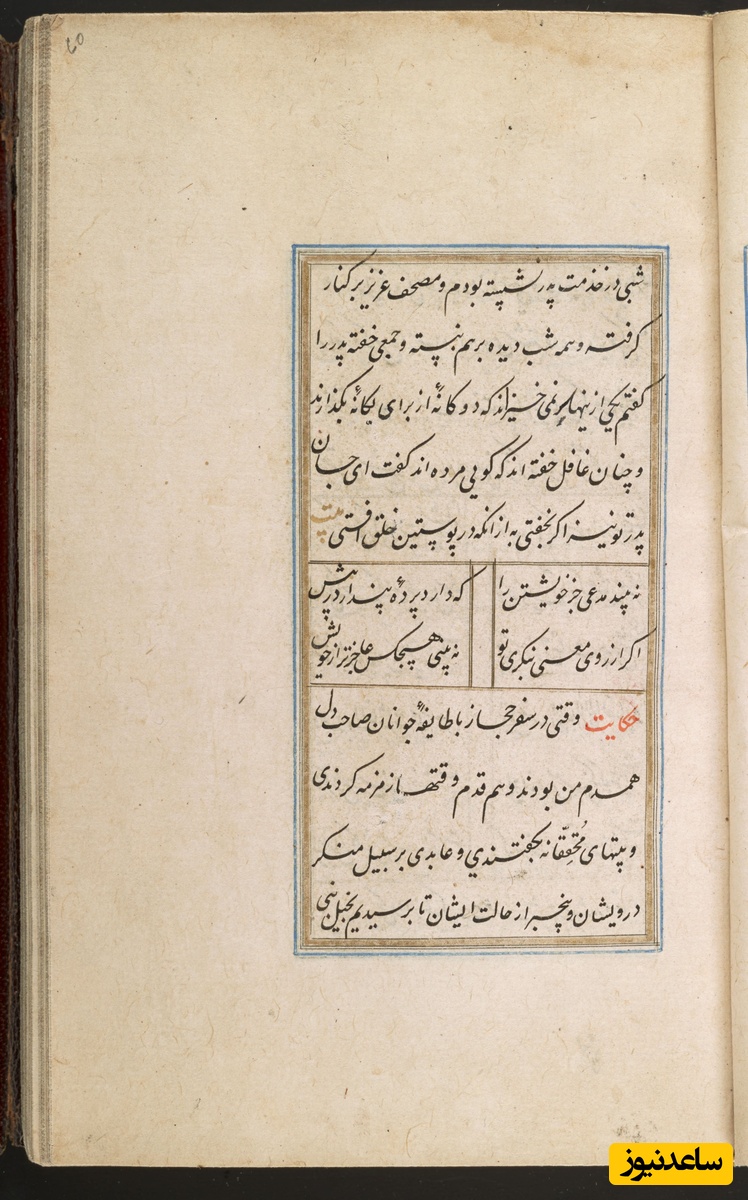 ٤٥
شبی در خدمت پدر نشسته بودم و مصحف عزیز بر کنار
گرفته و همه شب دیده برهم نبسته و جمعی خفته پدر را
گفتم یکی از ینها سر نمی خیزاند که دوکانهٔ از برای یکانهٔ بکذارند
و چنان غافل خفته اند که کویی مرده اند کفت ای جان
پدر تو نیز اکر بخفتی به از انکه در پوستین خلق افتی بیت
نه بیند مدعی جز خویشتن را که دارد پردهٔ پندار در پیش
اکر از روی معنی بنکری تو نه بینی هیچکس عاجزتر از خویش
حکایت وقتی در سفر حجاز با طایفهٔ جوانان صاحب دل
همدم من بودند و هم قدم وقتها زمزمه کردندی
و بیتهای مُحَقِّقانه بکفتندی و عابدی بر سبیل منکر
درویشان و بیخبر از حالت ایشان تا برسیدیم بخیل بنی
ساعدنیوز